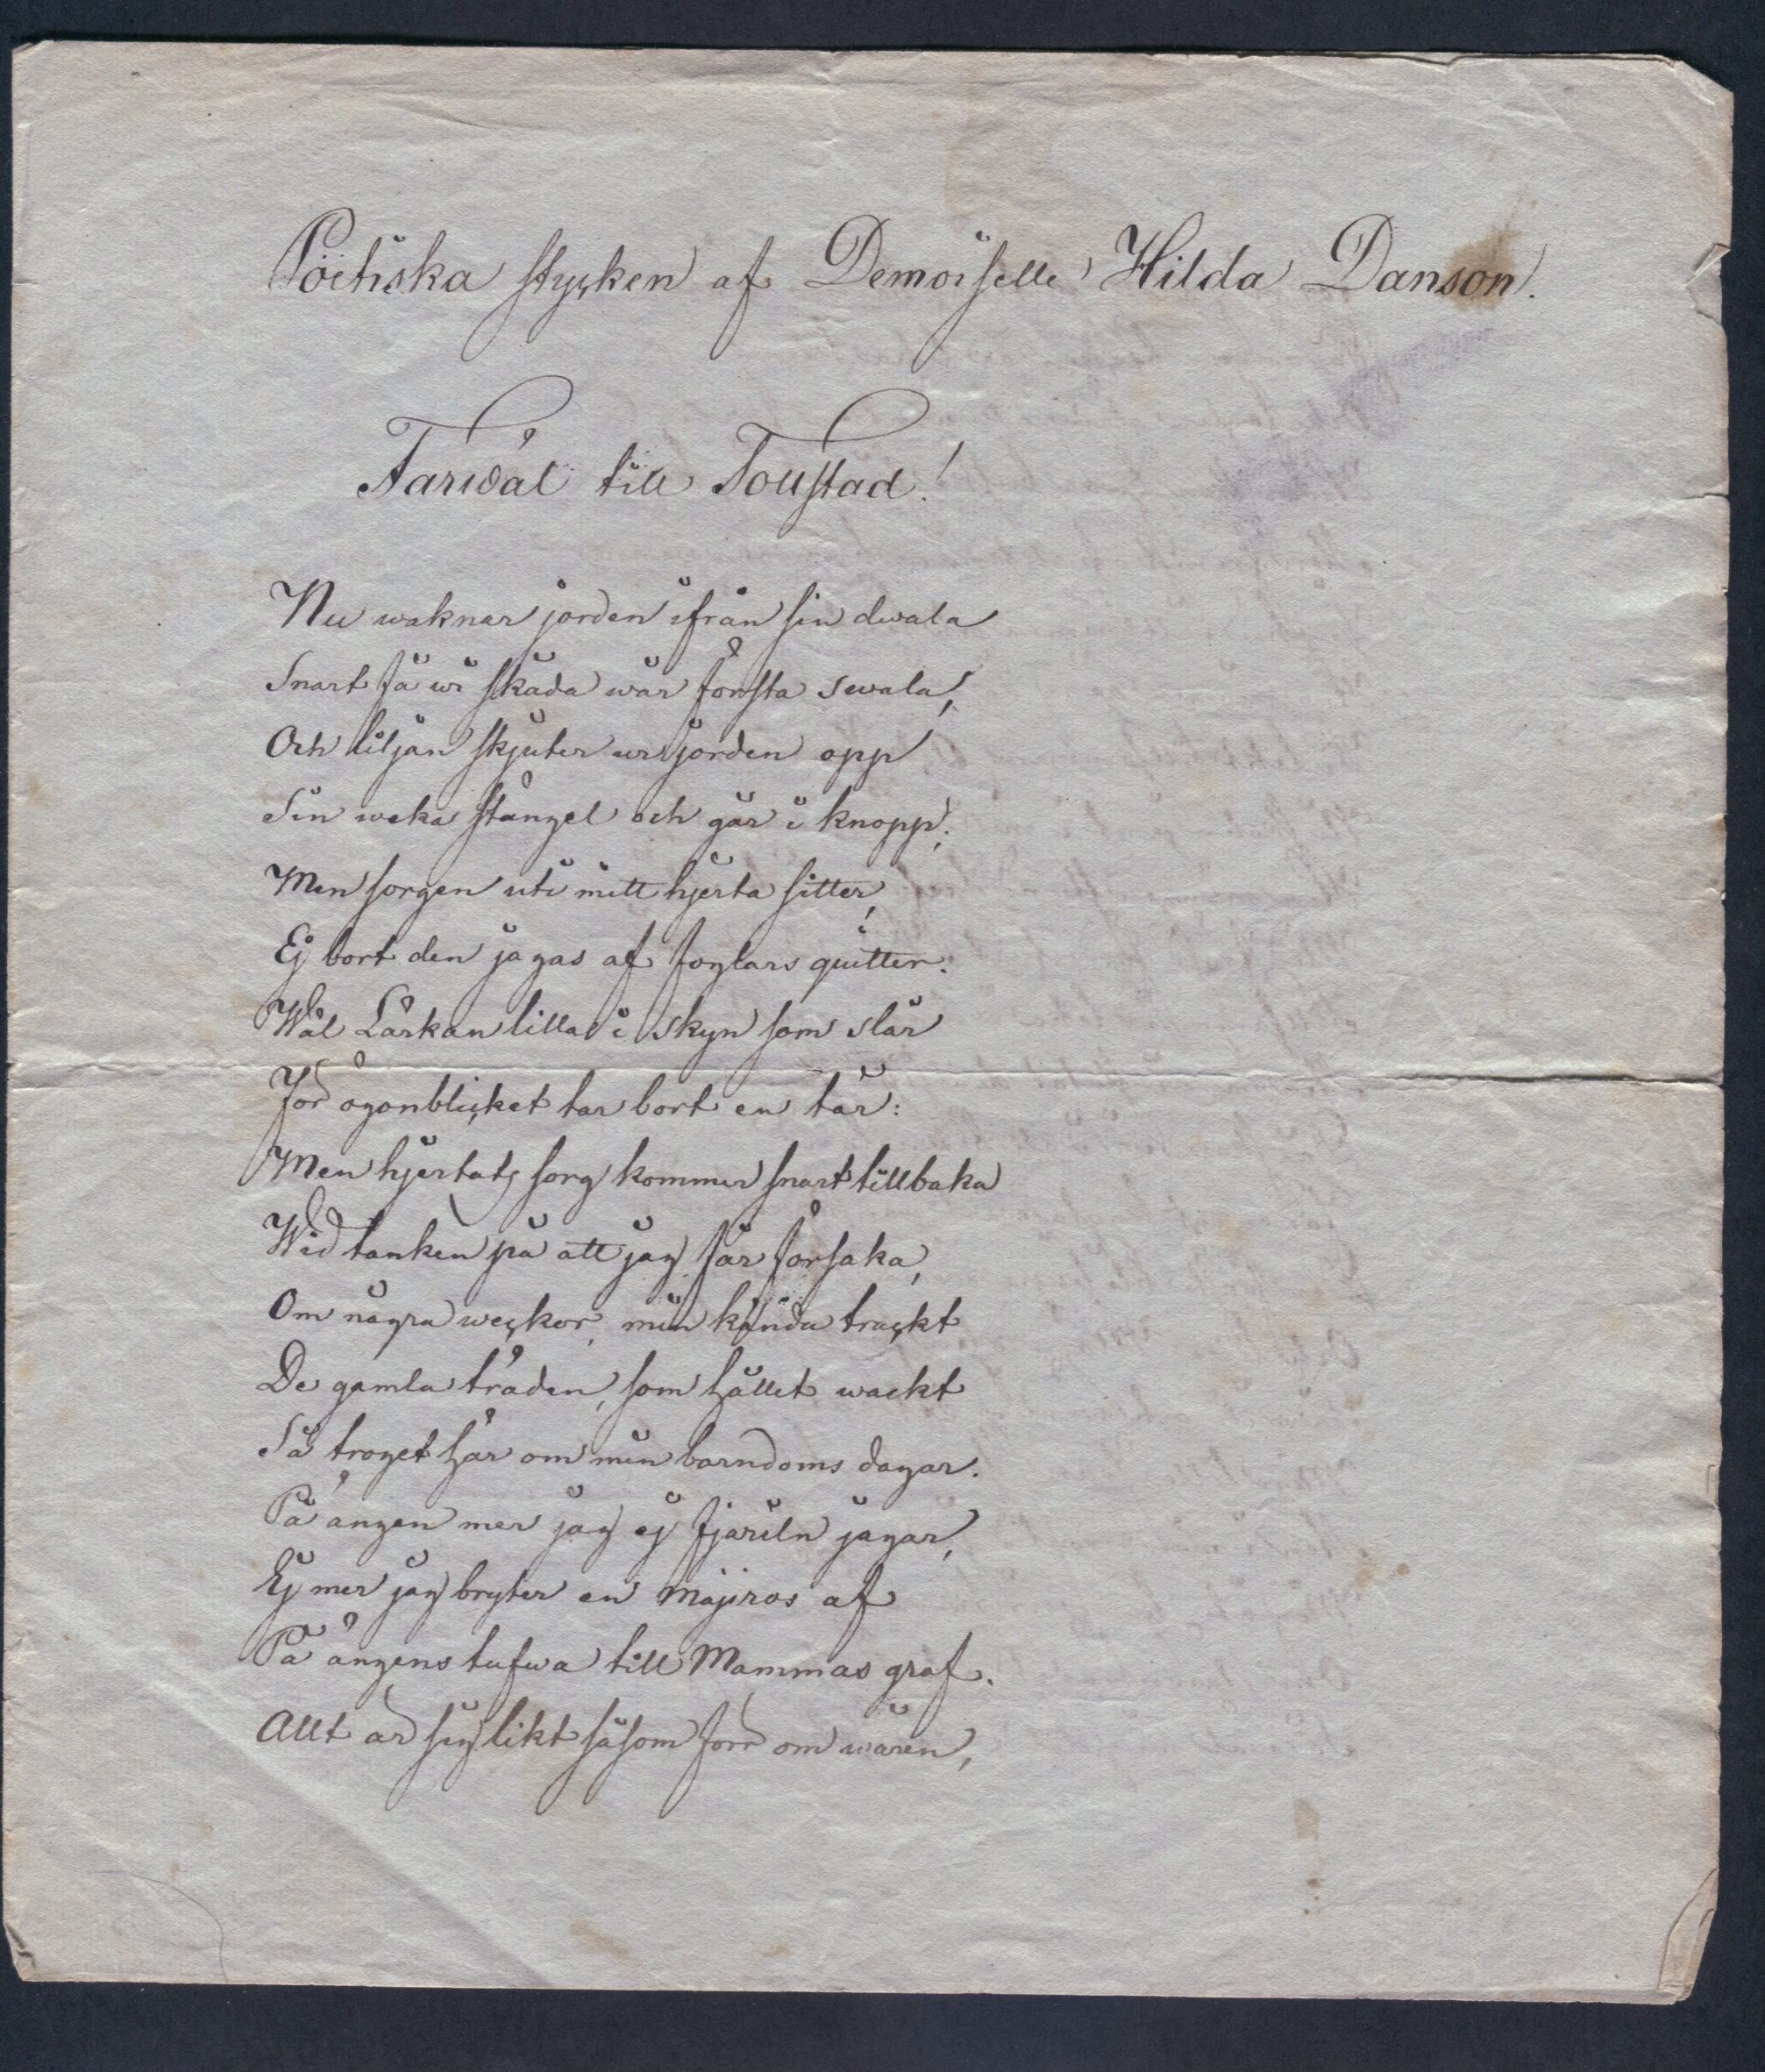 Poëtiska stycken af Demoiselle Hilda Danson.
Farwäl till Tollstad!
Nu waknar jorden ifrån sin dwala
Snart få wi skåda wår första swala,
Och liljan skjuter ur jorden opp
Sin weka stängel och går i knopp;
Men sorgen uti mitt hjerta sitter,
Ej bort den jagas af foglars quitter.
Wäl Lärkan lilla i skyn som slår
För ögonblicket tar bort en tår:
Men hjertats sorg kommer snart tillbaka
Wid tanken på att jag får försaka,
Om några weckor, min kända trackt
De gamla träden, som hållet wackt
Så troget här om min barndoms dagar.
På ängen mer jag ej fjäriln jagar,
Ej mer jag bryter en majros af
På ängens tufwa till Mammas graf.
Allt är sig likt såsom förr om wåren,